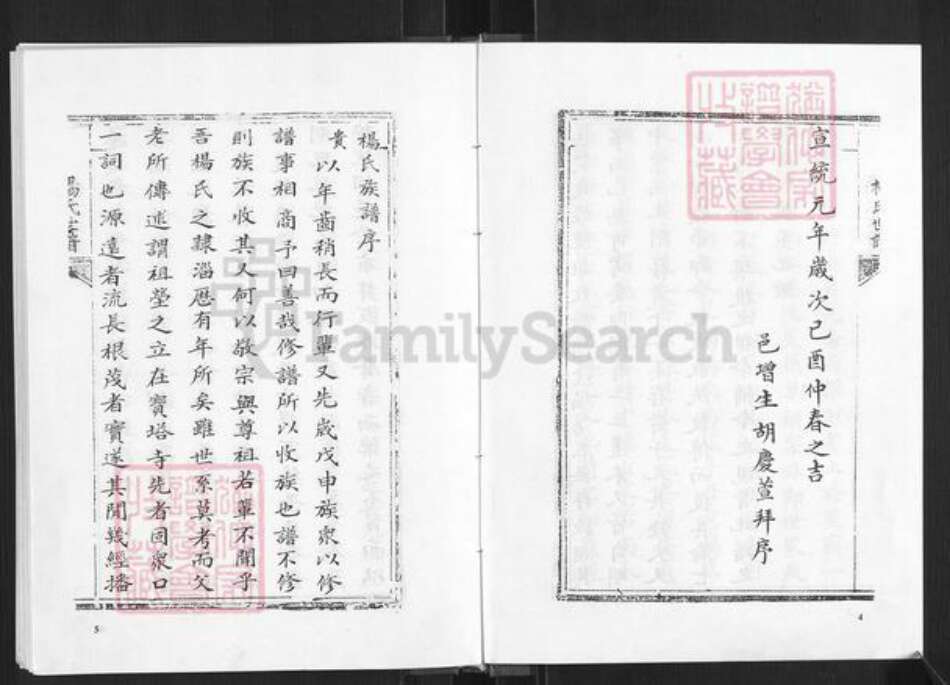 宣統元年歲次己酉仲春之吉
邑增生胡慶萱拜序
4
楊氏族譜序
貴以年齒稍長而行輩又先歲戊申族衆以修
譜事相商予曰善哉修譜所以收族也譜不修
則族不收其人何以敬宗與尊祖若輩不聞乎
吾楊氏之隸淄歷有年所矣雖世系莫考而父
老所傳述謂祖塋之立在寶塔寺先者固衆口
一詞也源遠者流長根茂者實遂其間幾經播
5
FamilySearch